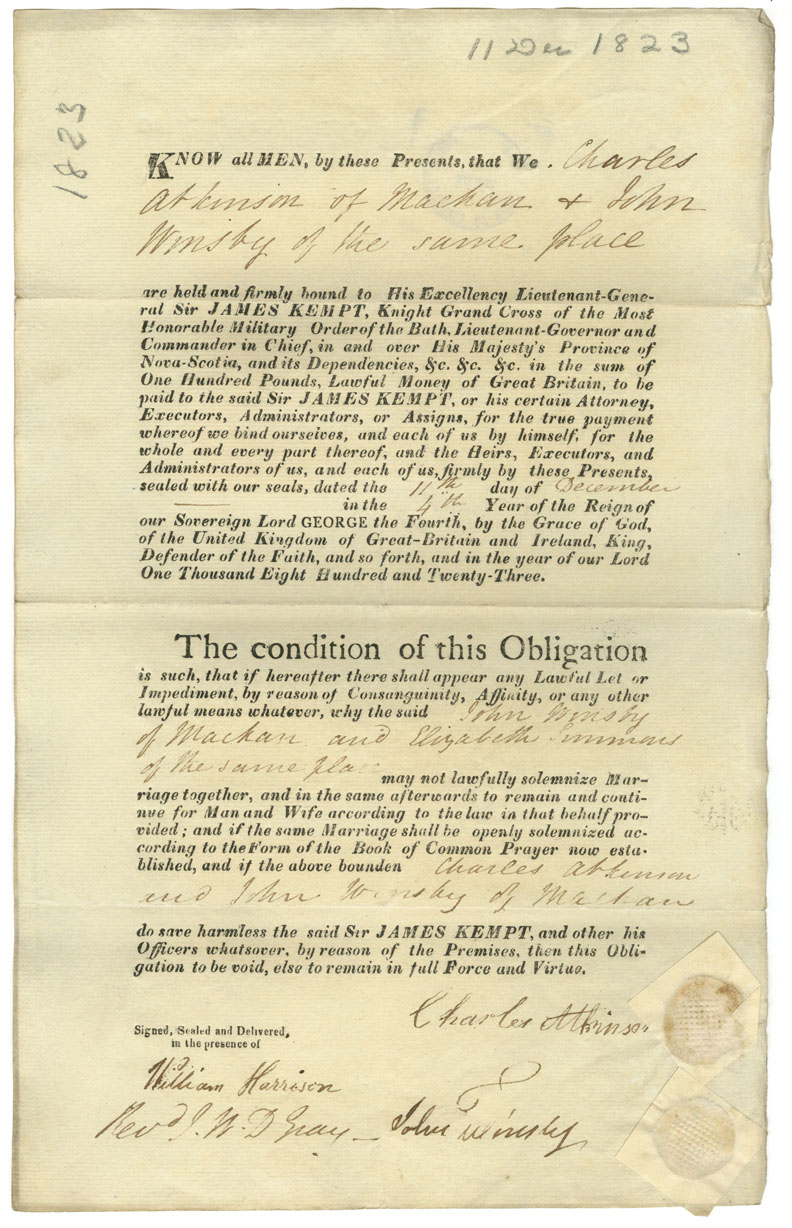 11 Dec 1823
1823
KNOW all MEN, by these Presents, that We. Charles
Atkinson of Mackan & John
Winsby of the same place
are held and firmly bound to His Excellency Lieutenant-Gene-
ral Sir JAMES KEMPT, Knight Grand Cross of the Most
Honorable Military Order of the Bath, Lieutenant-Governor and
Commander in Chief, in and over His Majesty's Province of
Nova-Scotia, and its Dependencies, &c. &c. &c. in the sum of
One Hundred Pounds, Lawful Money of Great Britain, to be
paid to the said Sir JAMES KEMPT, or his certain Attorney,
Executors, Administrators, or Assigns, for the true payment
whereof we bind ourselves, and each of us by himself, for the
whole and every part thereof, and the Heirs, Executors, and
Administrators of us, and each of us, firmly by these Presents,
sealed with our seals, dated the 11th day of December
in the 4th Year of the Reign of
our Sovereign Lord GEORGE the Fourth, by the Grace of God,
of the United Kingdom of Great-Britain and Ireland, King,
Defender of the Faith, and so forth, and in the year of our Lord
One Thousand Eight Hundred and Twenty-Three.
The condition of this Obligation
is such, that if hereafter there shall appear any Lawful Let or
Impediment, by reason of Consanguinity, Affinity, or any other
lawful means whatever, why the said John Winsby
of Mackan and Elizabeth Simmons
of the same place
may not lawfully solemnize Mar-
riage together, and in the same afterwards to remain and conti-
nue for Man and Wife according to the law in that behalf pro-
vided; and if the same Marriage shall be openly solemnized ac-
cording to the Form of the Book of Common Prayer now esta-
blished, and if the above bounden Charles Atkinson
and John Winsby of Mackan
do save harmless the said Sir JAMES KEMPT, and other his
Officers whatsover, by reason of the Premises, then this Obli-
gation to be void, else to remain in full Force and Virtue.
Charles Atkinson
Signed, Sealed and Delivered,
in the presence of
William Harrison
Revd J. W. D Gray John Winsby